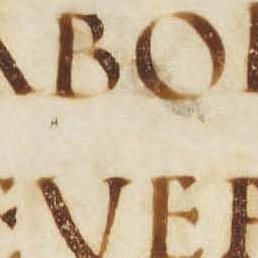 ABO
EVE